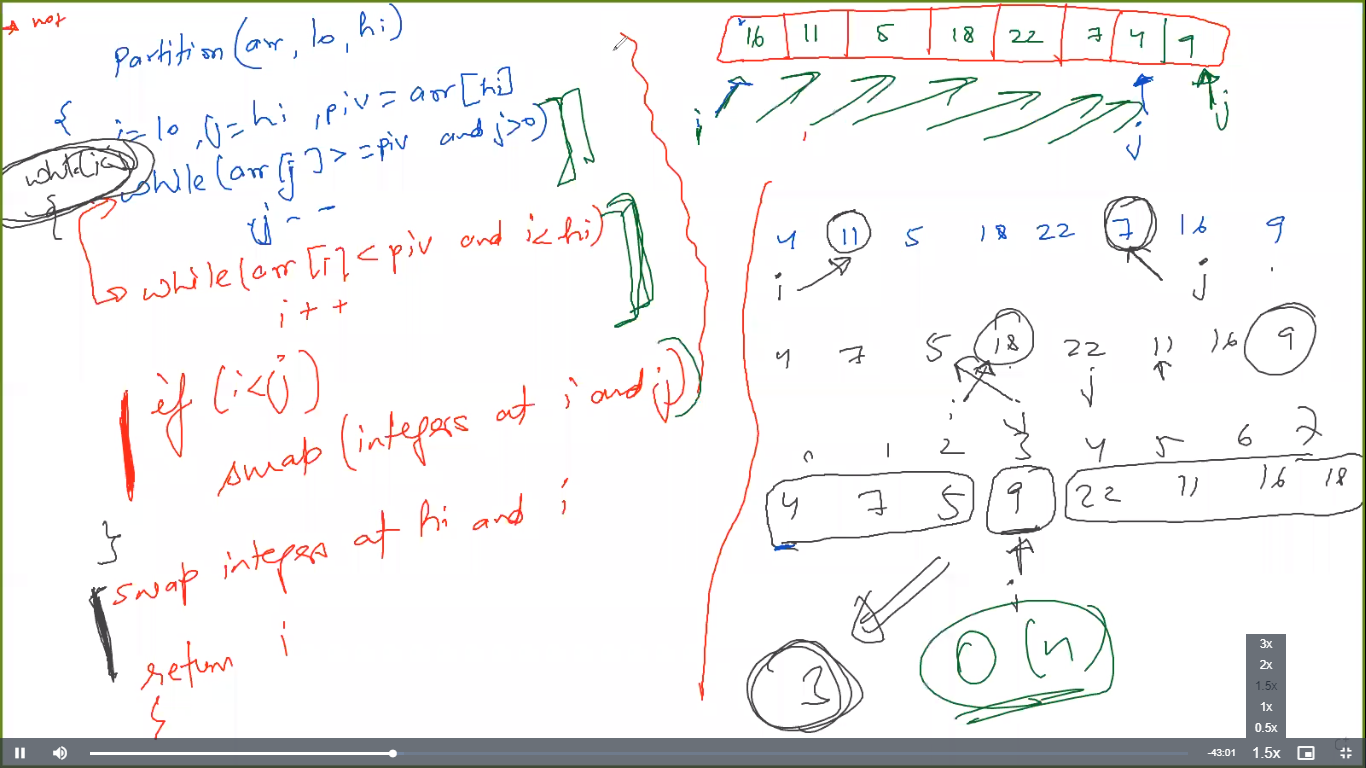 not
Partition(arr, lo, hi)
{ i=lo, j=hi, piv=arr[hi]
while(i<j)
{
while(arr[j]>=piv and j>0)
j--
while(arr[i]<piv and i<hi)
i++
if (i<j)
swap(integers at i and j)
}
swap integers at hi and i
return i
}
16 11 5 18 22 7 4 9
i j j
4 11 5 18 22 7 16 9
i j
4 7 5 18 22 11 16 9
i j j
0 1 2 3 4 5 6 7
4 7 5 9 22 11 16 18
i
3
O(n)
3x
2x
1.5x
1x
0.5x
-43:01 1.5x